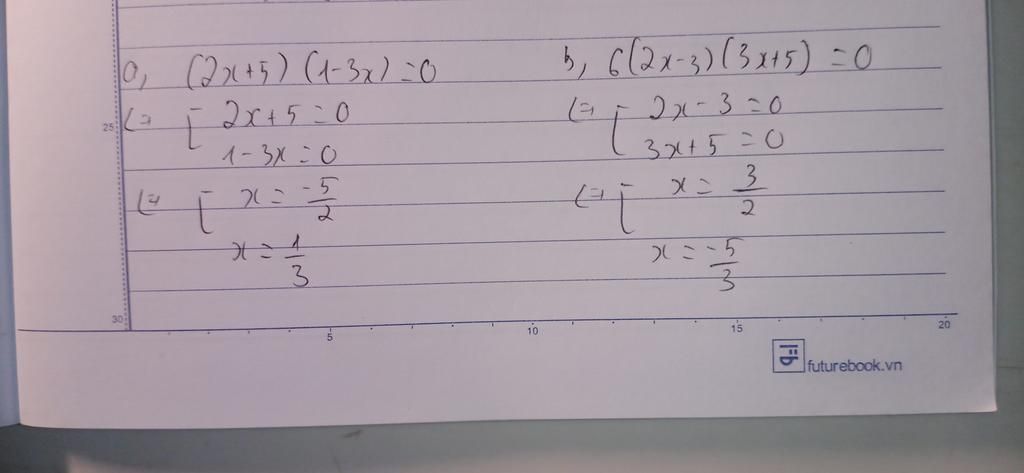 a, (2x+5)(1-3x)=0
<=> [ 2x+5=0
1-3x=0
<=> [ x = -5/2
x = 1/3
b, 6(2x-3)(3x+5)=0
<=> [ 2x-3=0
3x+5=0
<=> [ x = 3/2
x = -5/3
25
30
5
10
15
20
futurebook.vn